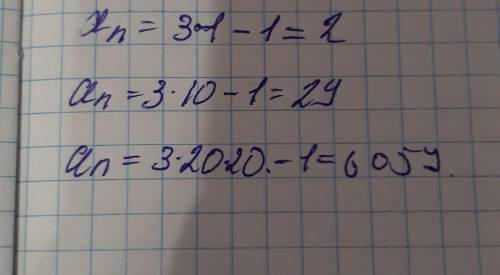 xn = 3·1 - 1 = 2
an = 3·10 - 1 = 29
an = 3·2020. - 1 = 6059.